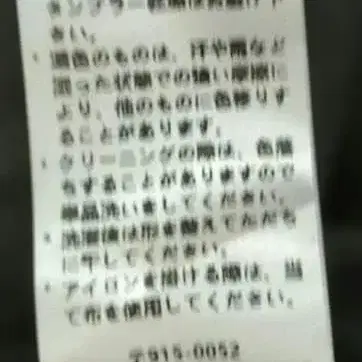 タンブラー乾燥はお避け下
さい。
・濃色のものは、汗や雨など
湿った状態での強い摩擦に
より、他のものに色移りす
ることがあります。
・クリーニングの際は、色落
ちすることがありますので
単品洗いをしてください。
・洗濯後は形を整えてただち
に干してください。
・アイロンを掛ける際は、当
て布を使用してください。
〒915-0052